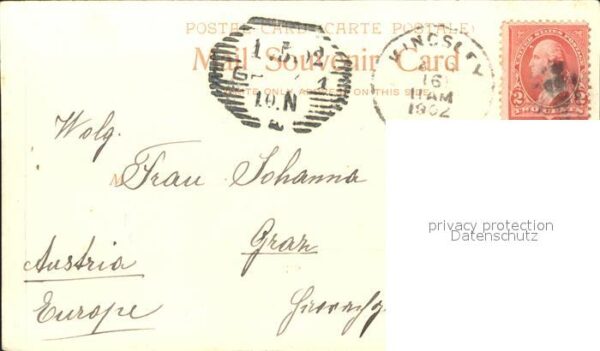 POSTAL CARD (CARTE POSTALE)
Mail Souvenir Card
WRITE ONLY ADDRESS ON THIS SIDE
1 5 02
10.N
KINGSLEY
16
11 AM
1902
UNITED STATES POSTAGE
2 2
Frau Johanna
Graz
Austria
Europe
privacy protection
Datenschutz